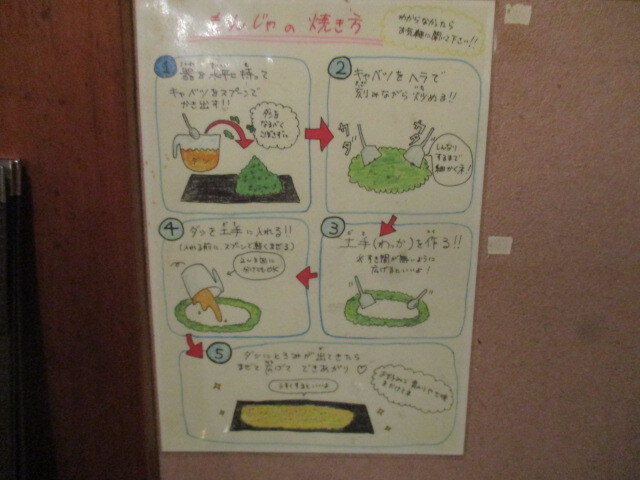 もんじゃの焼き方
わからなかったら
お気軽に聞いて下さい!!
①
器を水平に持って
キャベツをスプーンで
かき出す!!
汁は
なるべく
こぼさずに
②
キャベツをヘラで
刻みながら炒める!!
しんなり
するまで
細かくネ!
④
ダシを土手に入れる!!
(入れる前にスプーンで軽くまぜる)
2~3回に
分けてもOK
③
土手(わっか)を作る!!
※すき間が無いように
広げるといいよ!
⑤
ダシにとろみが出てきたら
まぜて広げて できあがり♡
うすくするといいよ